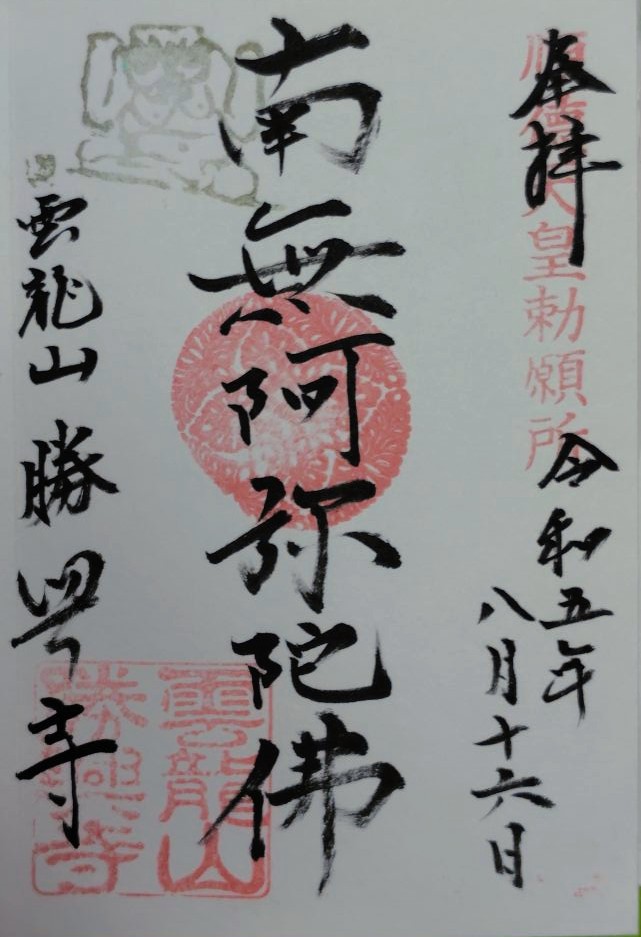 奉拝
順徳天皇勅願所
令和五年
八月十六日
南無阿弥陀佛
雲龍山 勝興寺
雲龍山
勝興寺